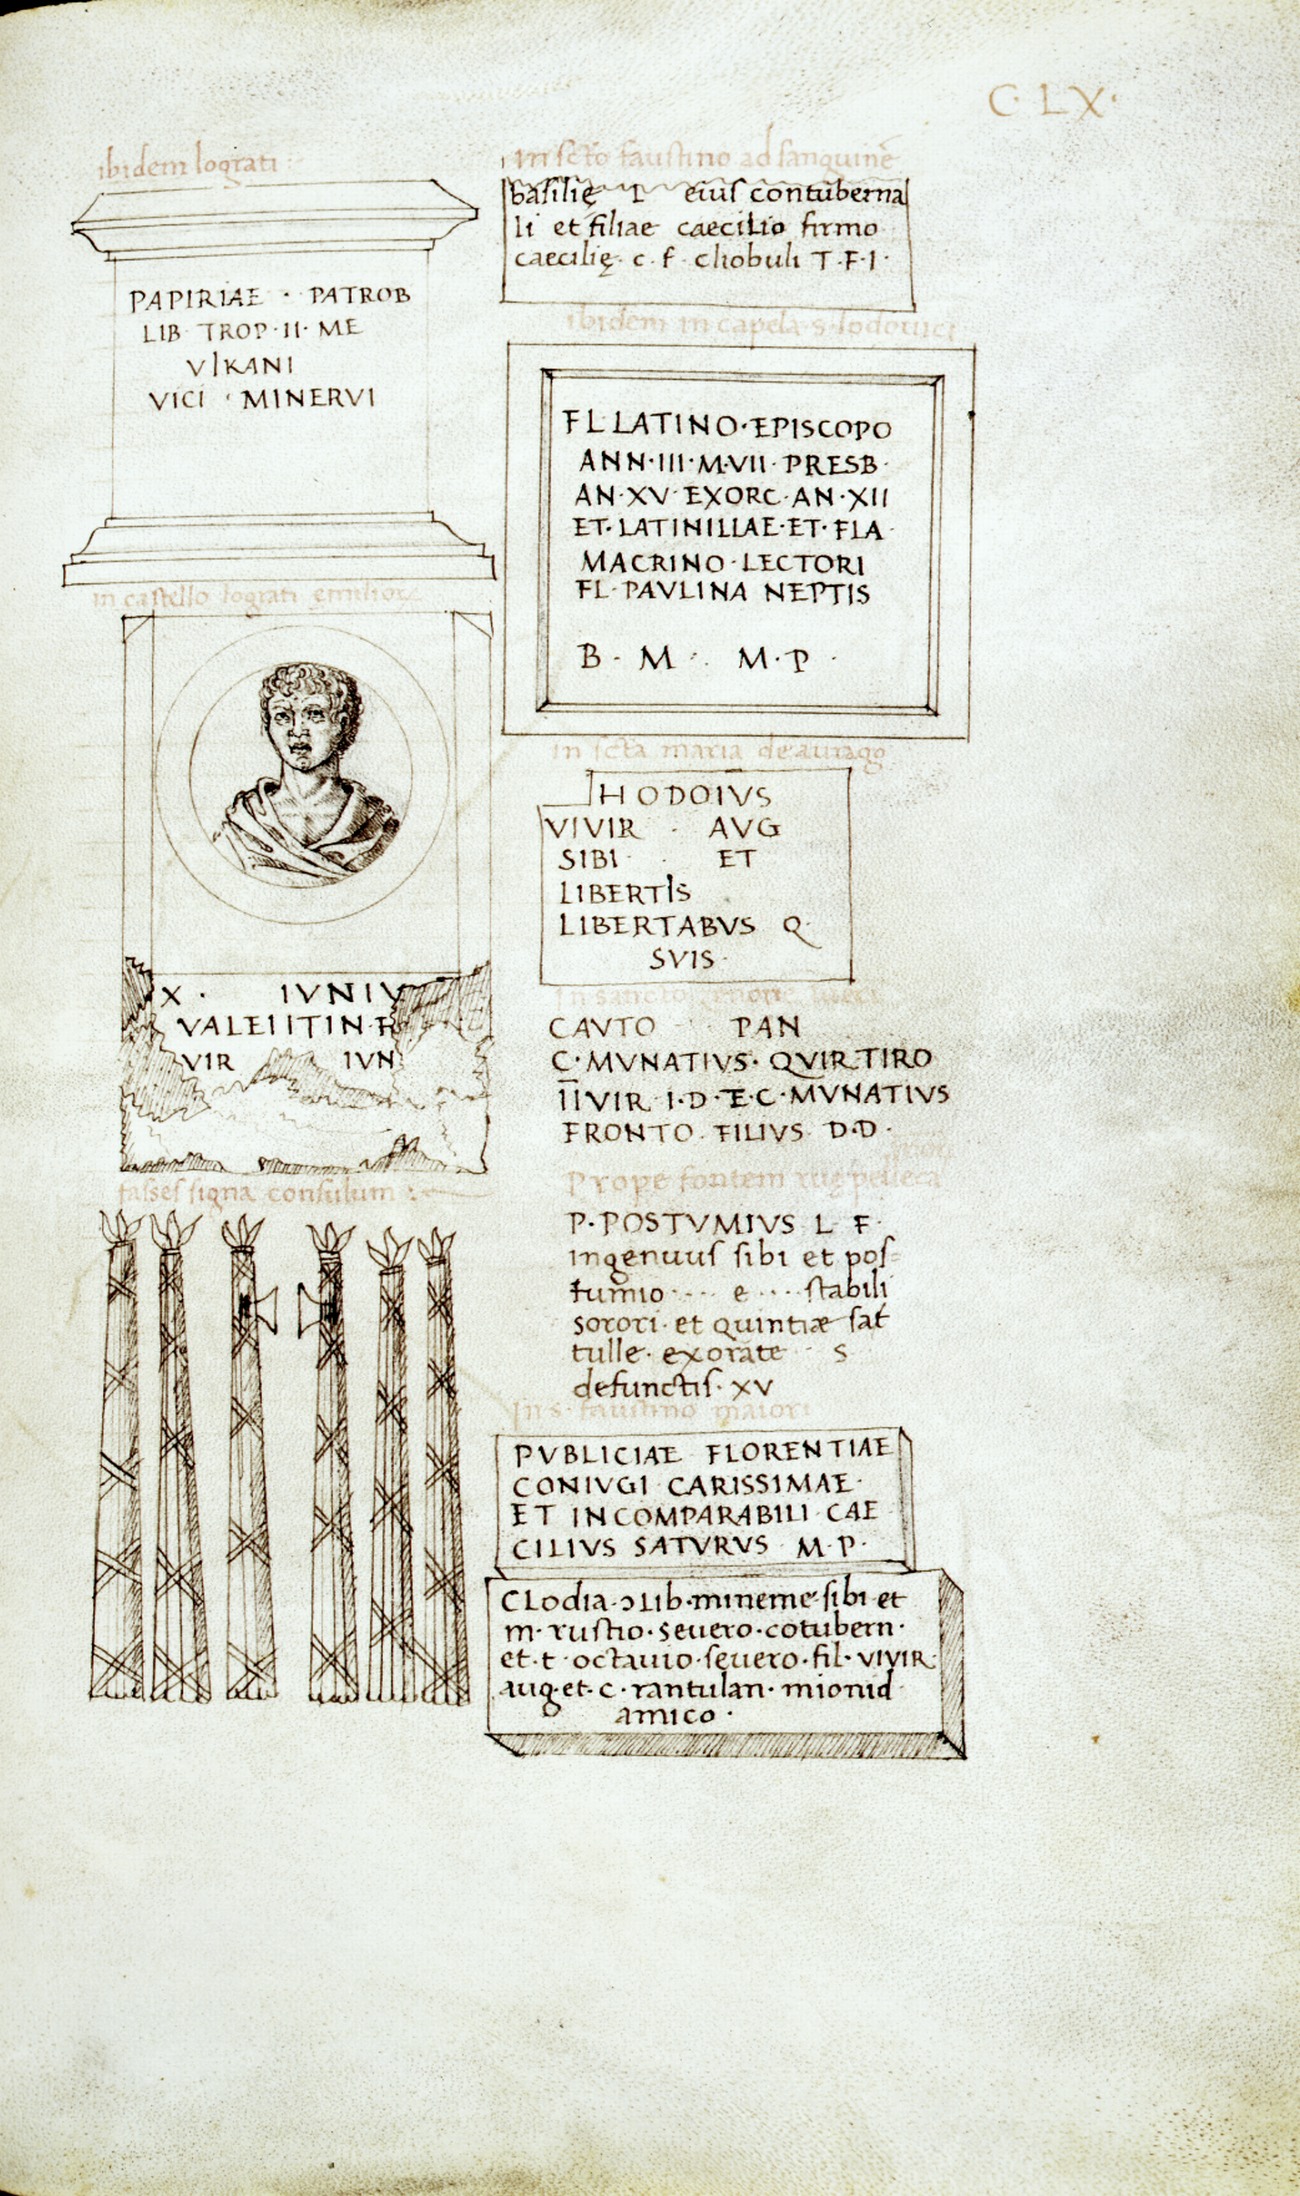 C·LX·
ibidem lograti
PAPIRIAE · PATROB
LIB TROP·II·ME
VIKANI
VICI · MINERVI
in castello lograti
X · IVNIV
VALEIITIN·F
VIR IVN
fasses signa consulum
In scto faustino ad sanguinē
basilię L eius contuberna
li et filiae caecilio firmo
caecilię· c·f· cliobuli T·F·I·
ibidem in capela·s·lodouici
FL·LATINO·EPISCOPO
ANN·III·M·VII·PRESB·
AN·XV·EXORC·AN·XII
ET·LATINILLAE·ET·FLA·
MACRINO·LECTORI
FL·PAVLINA NEPTIS
B· M · M·P ·
in scta maria de
HODOIVS
VIVIR · AVG
SIBI · ET
LIBERTIS
LIBERTABVS Q·
SVIS·
In
CAVTO PAN
C·MVNATIVS· QVIR·TIRO
IIVIR I·D·E·C·MVNATIVS
FRONTO· FILIVS D·D·
Prope fontem
P·POSTVMIVS L F·
ingenuus sibi et pos=
tumio ···· e ···· stabili
sorori·et quintiæ sat
tulle·exorate S
defunctis·XV
In s· faustino maiori
PVBLICIAE FLORENTIAE
CONIVGI CARISSIMAE·
ET INCOMPARABILI CAE
CILIVS SATVRVS M·P·
CLodia·ɔLib·mineme·sibi·et
m·rustio·seuero·cotubern·
et·t·octauio·seuero·fil·VIVIR·
aug·et·c·rantulan·mionid
amico·